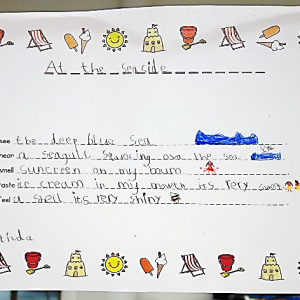 At the seaside
see the deep blue sea
hear a seagull over the sea
smell suncreen on my mum
taste ice cream in my mouth its very
feel a shell its very shiny